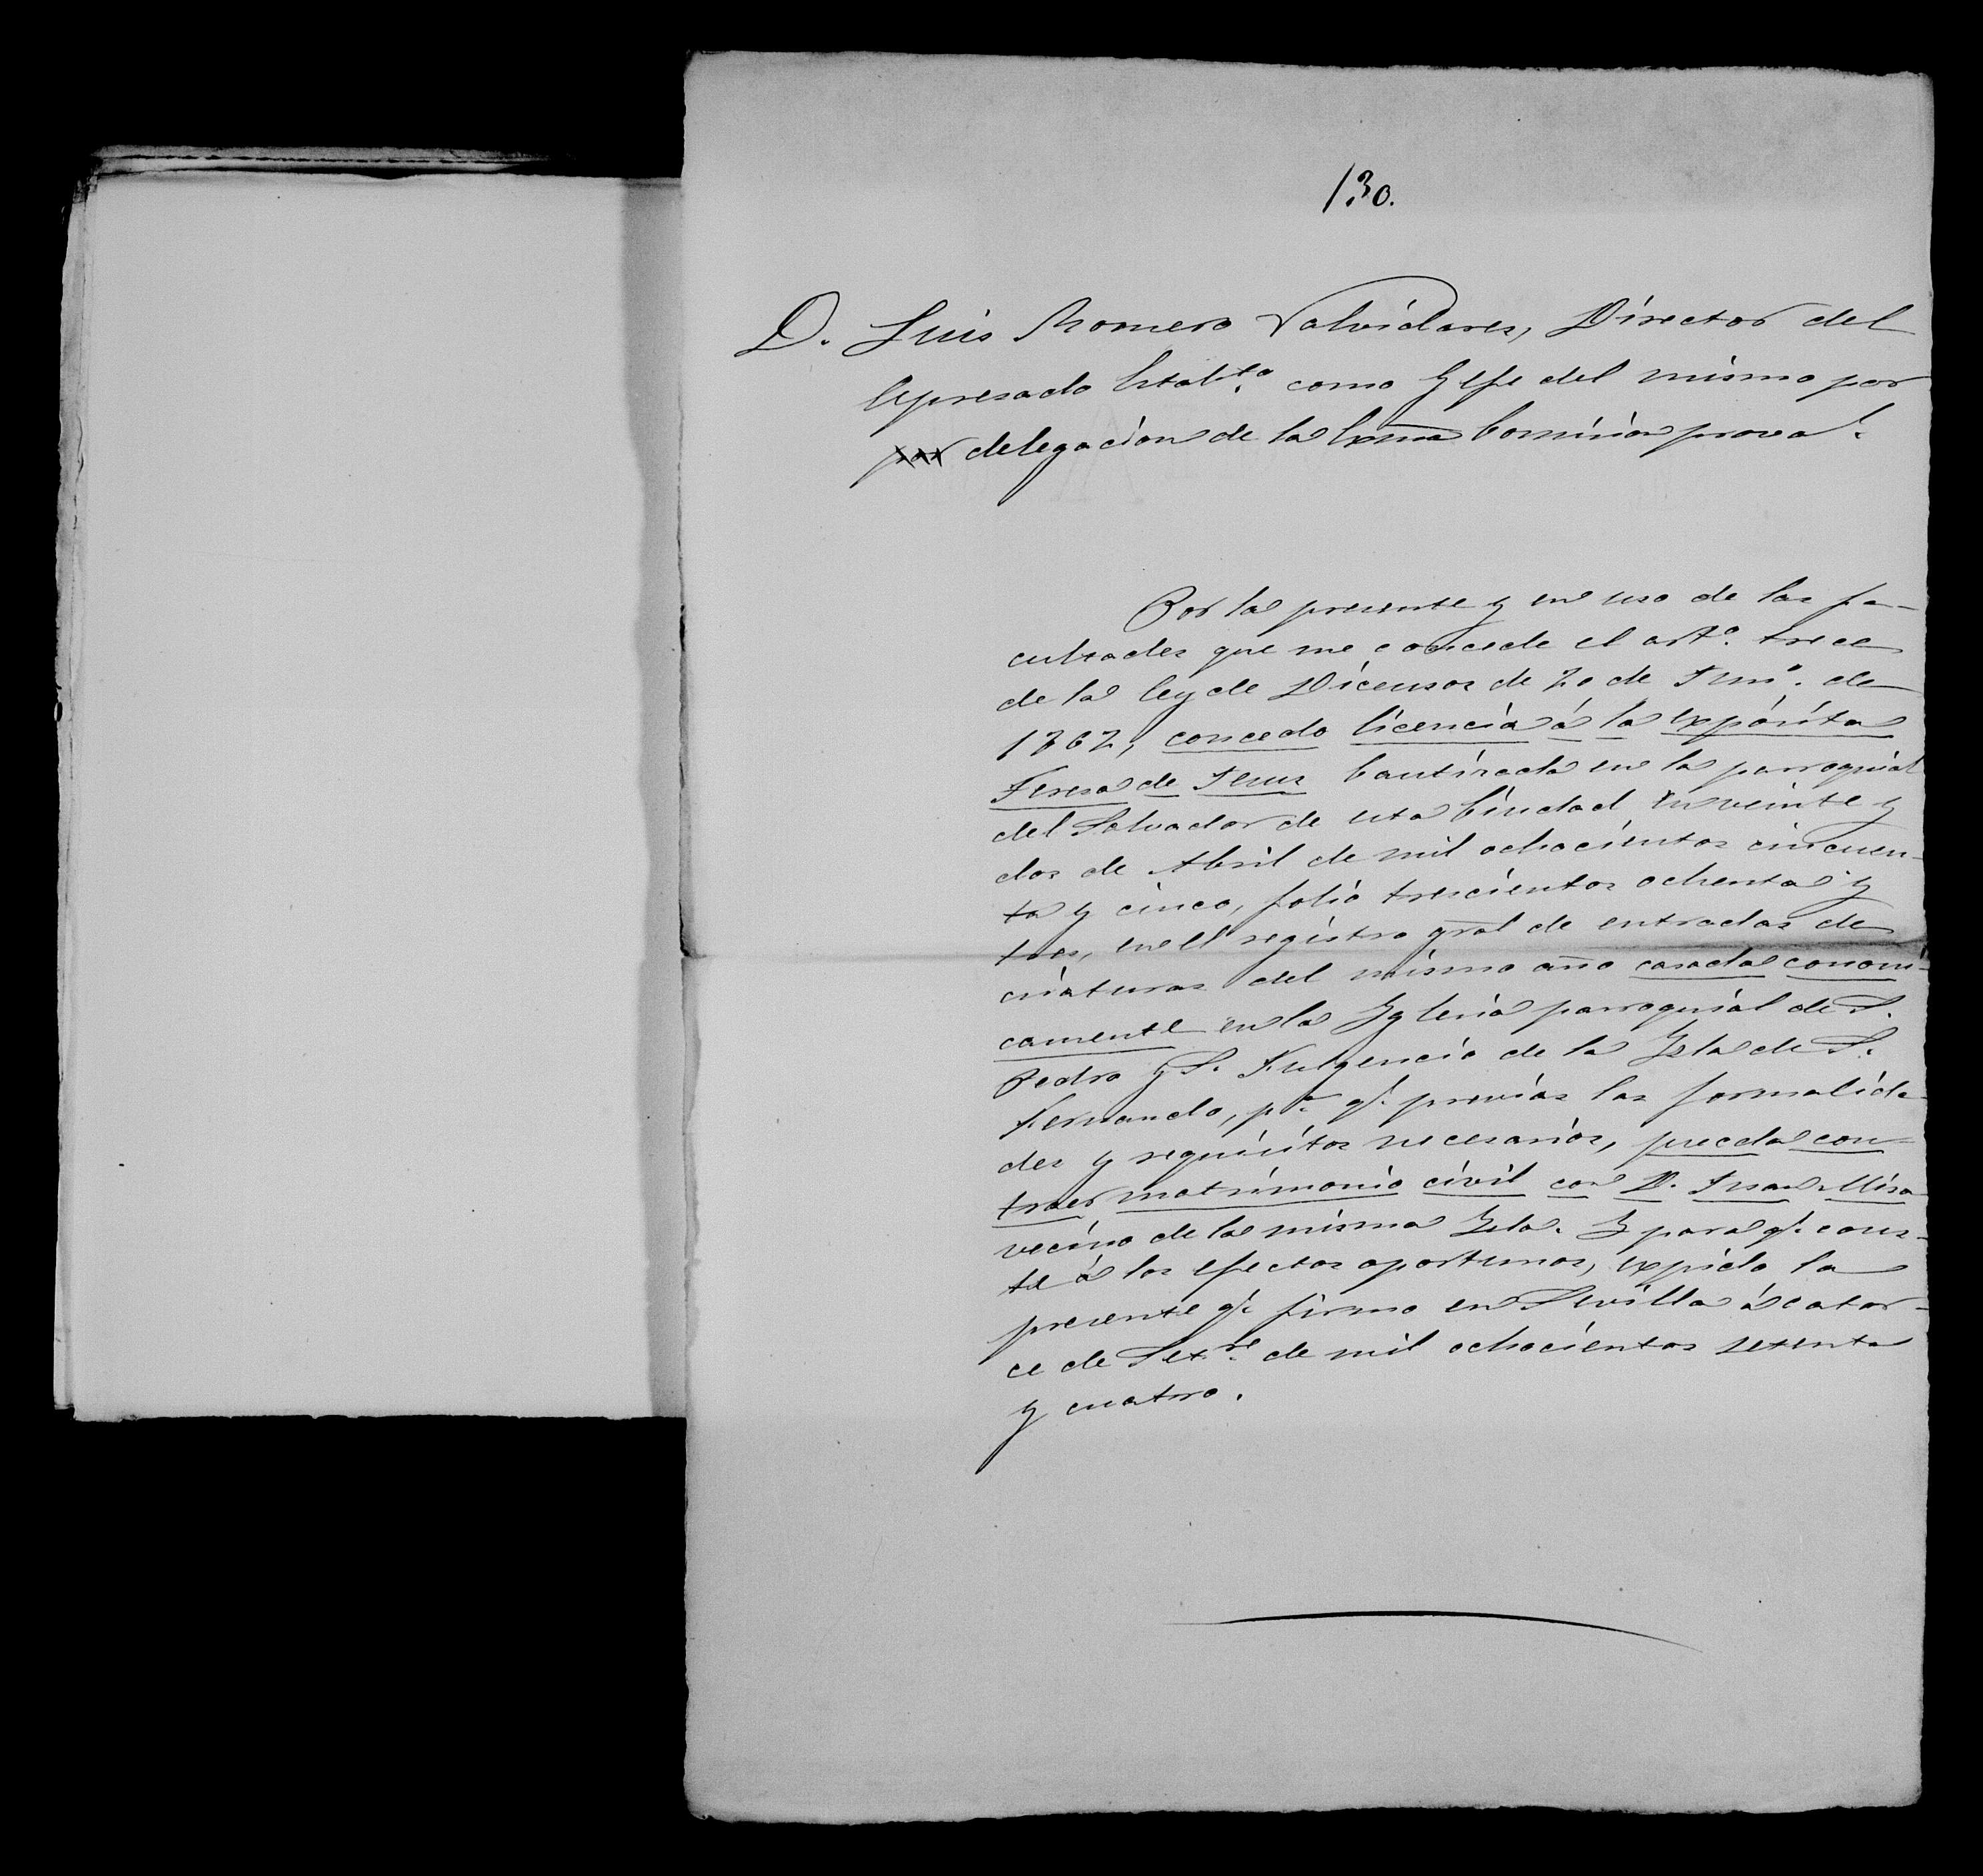 130.
D. Luis Romero Valvidares, Director del
Expresado Establ.to como Gefe del mismo por
por delegacion de la Exma Comision prova.l
Por la presente y en uso de las fa-
cultades que me concede el art.o trece
de la ley de Dicensos de 20 de Jun.o de
1862, concedo licencia á la expósita
Teresa de Jesus bautizada en la parroquial
del Salvador de esta Ciudad en veinte y
dos de Abril de mil ochocientos cincuen-
ta y cinco, folio trescientos ochenta y
tres, en el registro gral de entradas de
criaturas del mismo año casada canoni-
camente en la Yglesia parroquial de S.
Pedro y S. Fulgencio de la Ysla de S.
Fernando, p.a q.e previas las formalida-
des y requisitos necesarios, pueda con-
traer matrimonio civil con D. Juan Misa
vecino de la misma Ysla. Y para q.e cons-
te á los efectos oportunos, expido la
presente q.e firmo en Sevilla á cator-
ce de Set.re de mil ochocientos setenta
y cuatro.